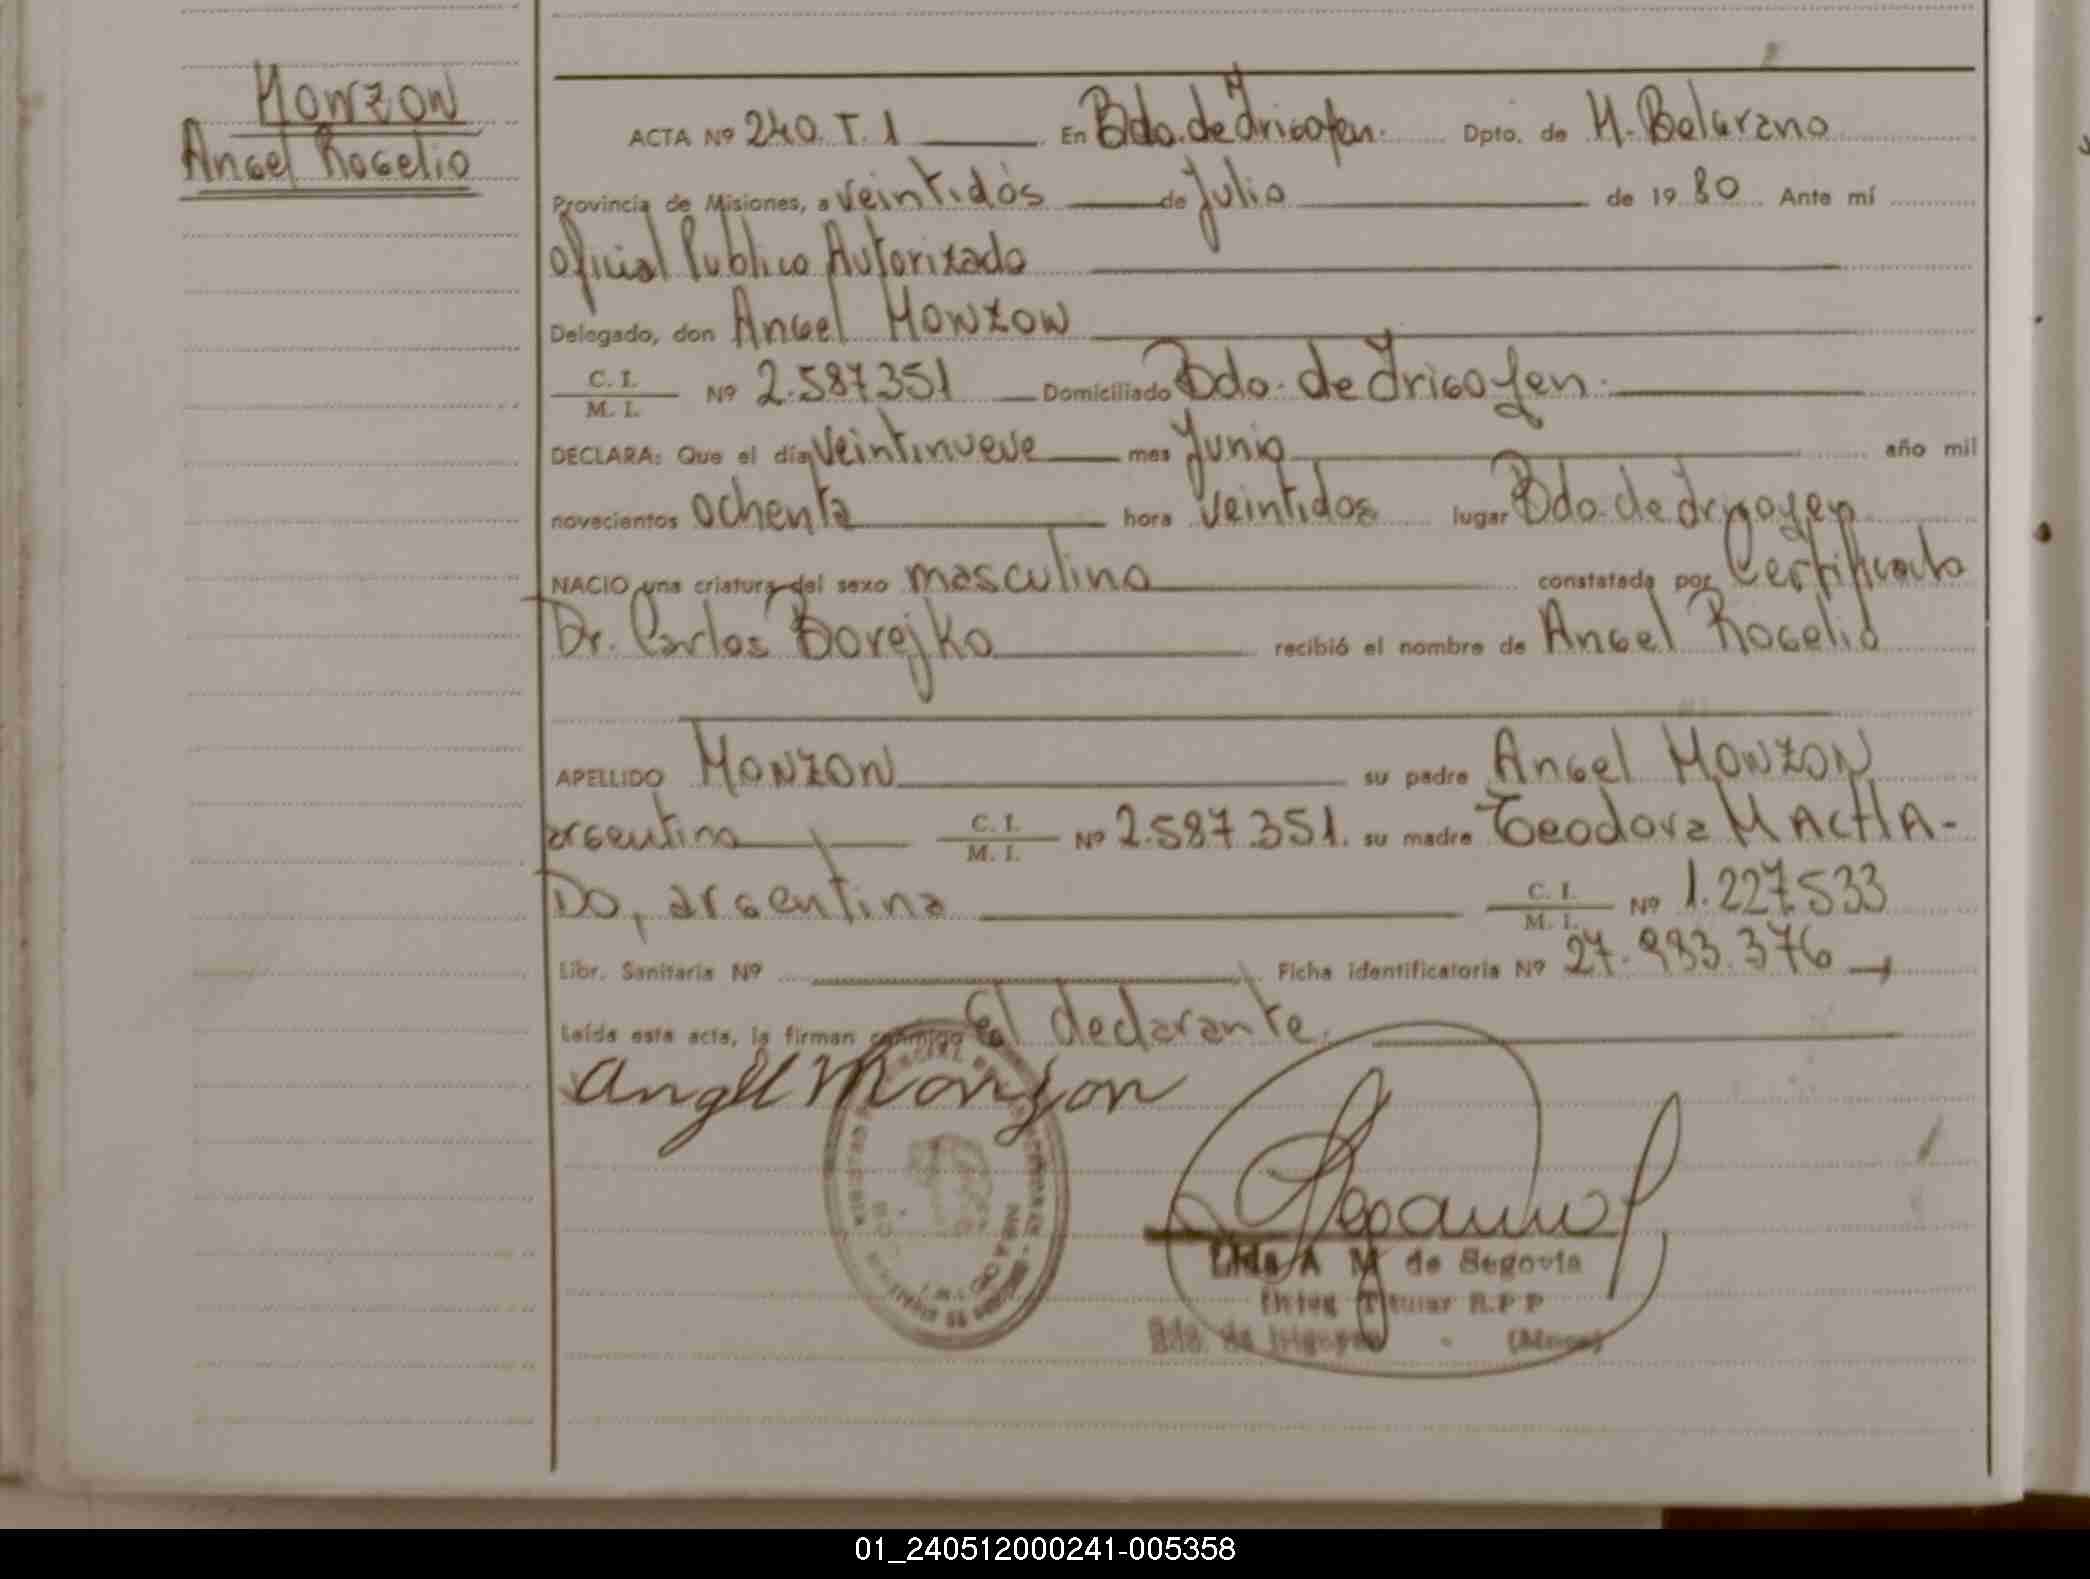 MONZON
Angel Rogelio
ACTA Nº 240. T. 1 En Bdo. de Irigoyen. Dpto. de M. Belgrano
Provincia de Misiones, a veintidós de Julio de 19 80 Ante mí
Oficial Publico Autorizado
Delegado, don Angel MONZON
C. I. / M. I. Nº 2.587.351 Domiciliado Bdo. de Irigoyen.
DECLARA: Que el día veintinueve mes Junio año mil
novecientos ochenta hora veintidos lugar Bdo. de Irigoyen
NACIO una criatura del sexo masculino constatada por Certificado
Dr. Carlos Borejko recibió el nombre de Angel Rogelio
APELLIDO MONZON su padre Angel MONZON
argentino C. I. / M. I. Nº 2.587.351. su madre Teodora MACHA-
DO, argentina C. I. / M. I. Nº 1.227.533
Libr. Sanitaria Nº Ficha identificatoria Nº 27.983.376
Leída esta acta, la firman conmigo El declarante.
Angel Monzon
Lida A M de Segovia
Titular R.P.P
Bdo. de Irigoyen (Mnes)
01_240512000241-005358